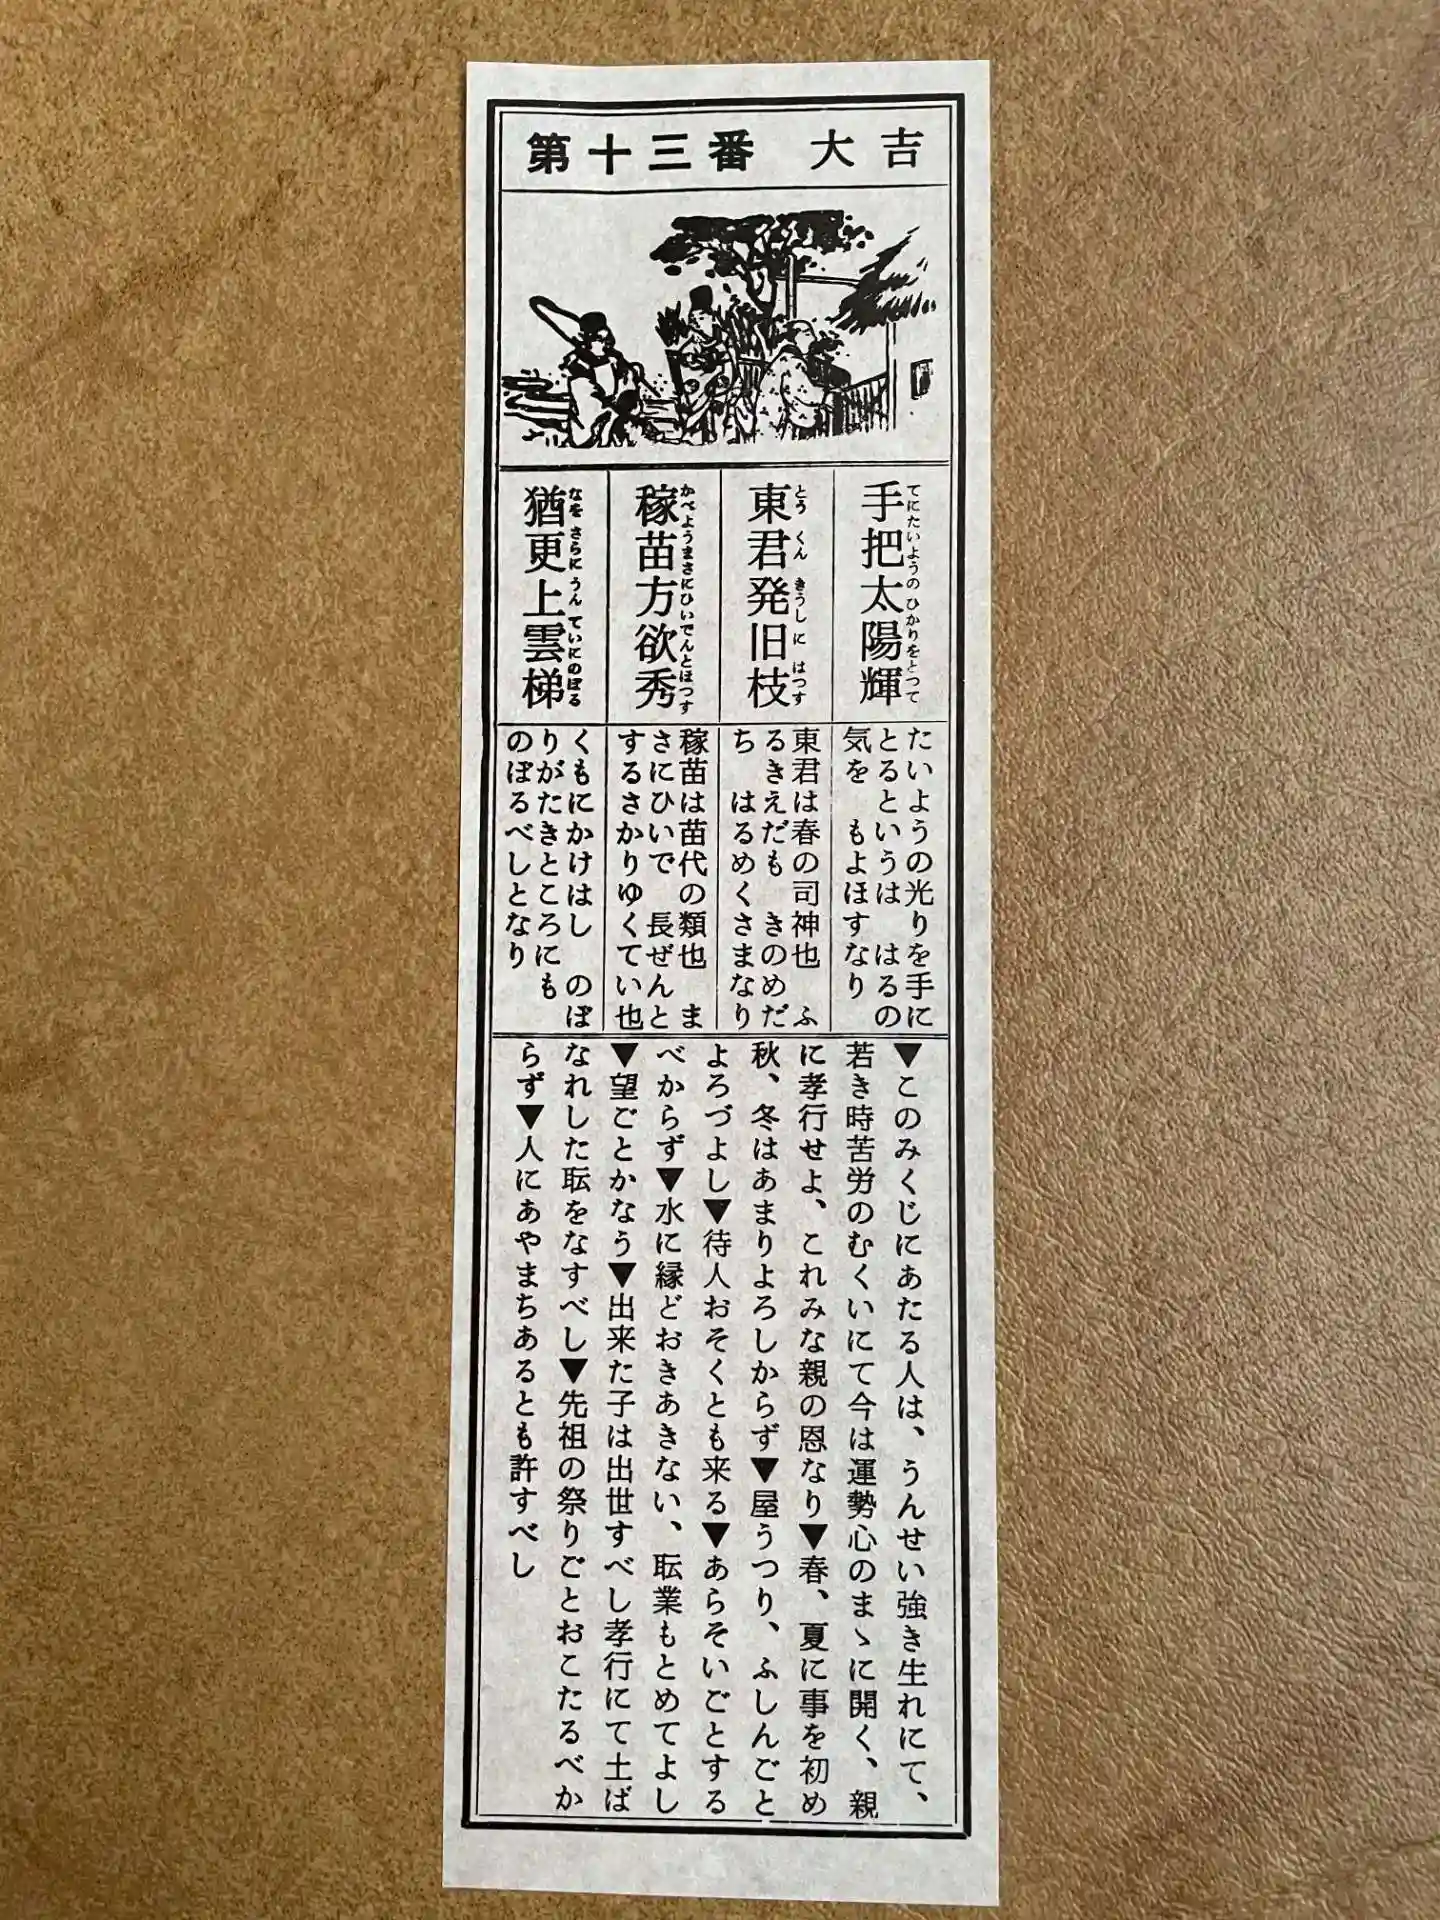 第十三番 大吉
手把太陽輝
てにたいようの ひかりをとつて
東君発旧枝
とう くん きうし に はつす
稼苗方欲秀
かべようまさにひいでんとほつす
猶更上雲梯
なを さらに うん ていにのぼる
たいようの光りを手に
とるというは はるの
気を もよほすなり
東君は春の司神也 ふ
るきえだも きのめだ
ち はるめくさまなり
稼苗は苗代の類也 ま
さにひいで 長ぜんと
するさかりゆくてい也
くもにかけはし のぼ
りがたきところにも
のぼるべしとなり
▼このみくじにあたる人は、うんせい強き生れにて、
若き時苦労のむくいにて今は運勢心のまゝに開く、親
に孝行せよ、これみな親の恩なり▼春、夏に事を初め
秋、冬はあまりよろしからず▼屋うつり、ふしんごと
よろづよし▼待人おそくとも来る▼あらそいごとする
べからず▼水に縁どおきあきない、耺業もとめてよし
▼望ごとかなう▼出来た子は出世すべし孝行にて土ば
なれした耺をなすべし▼先祖の祭りごとおこたるべか
らず▼人にあやまちあるとも許すべし